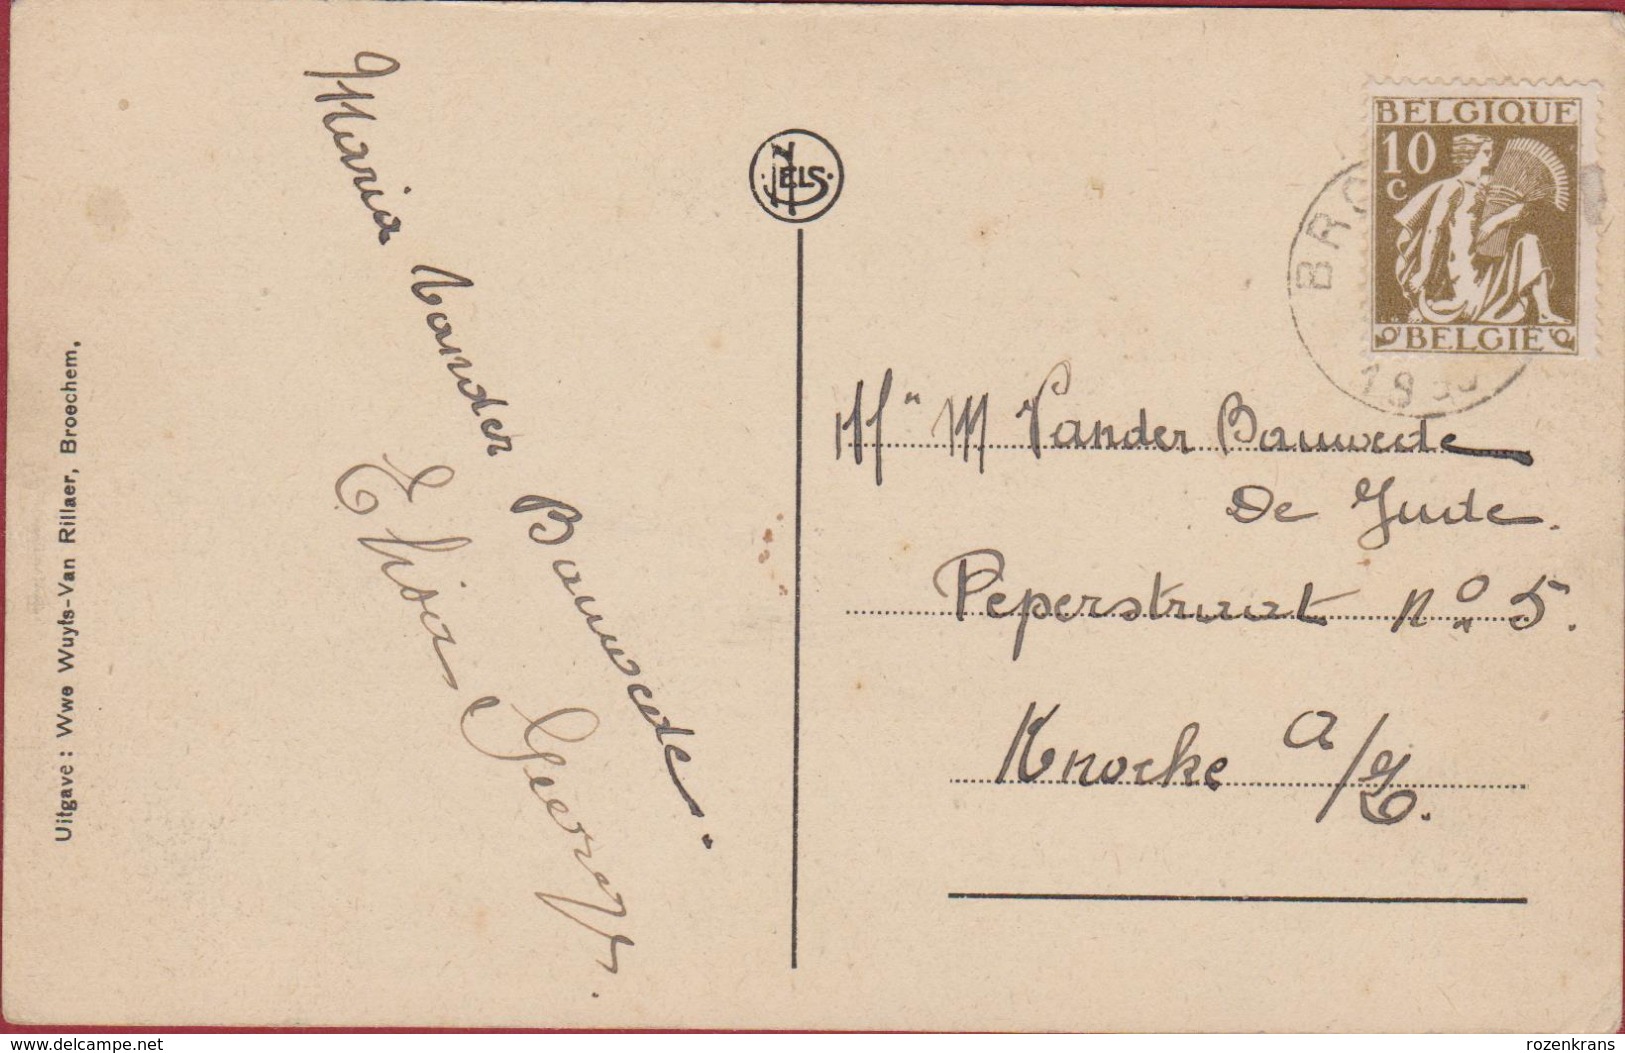 Uitgave : Wwe Wuyts-Van Rillaer, Broechem,
Maria Vander Bauwede.
Elisa Georgy.
NELS
BELGIQUE
10
C
BELGIË
BRO
193
M" M Vander Bauwede
De Jude.
Peperstraat No 5.
Knocke a/Z.
www.delcampe.net
rozenkrans